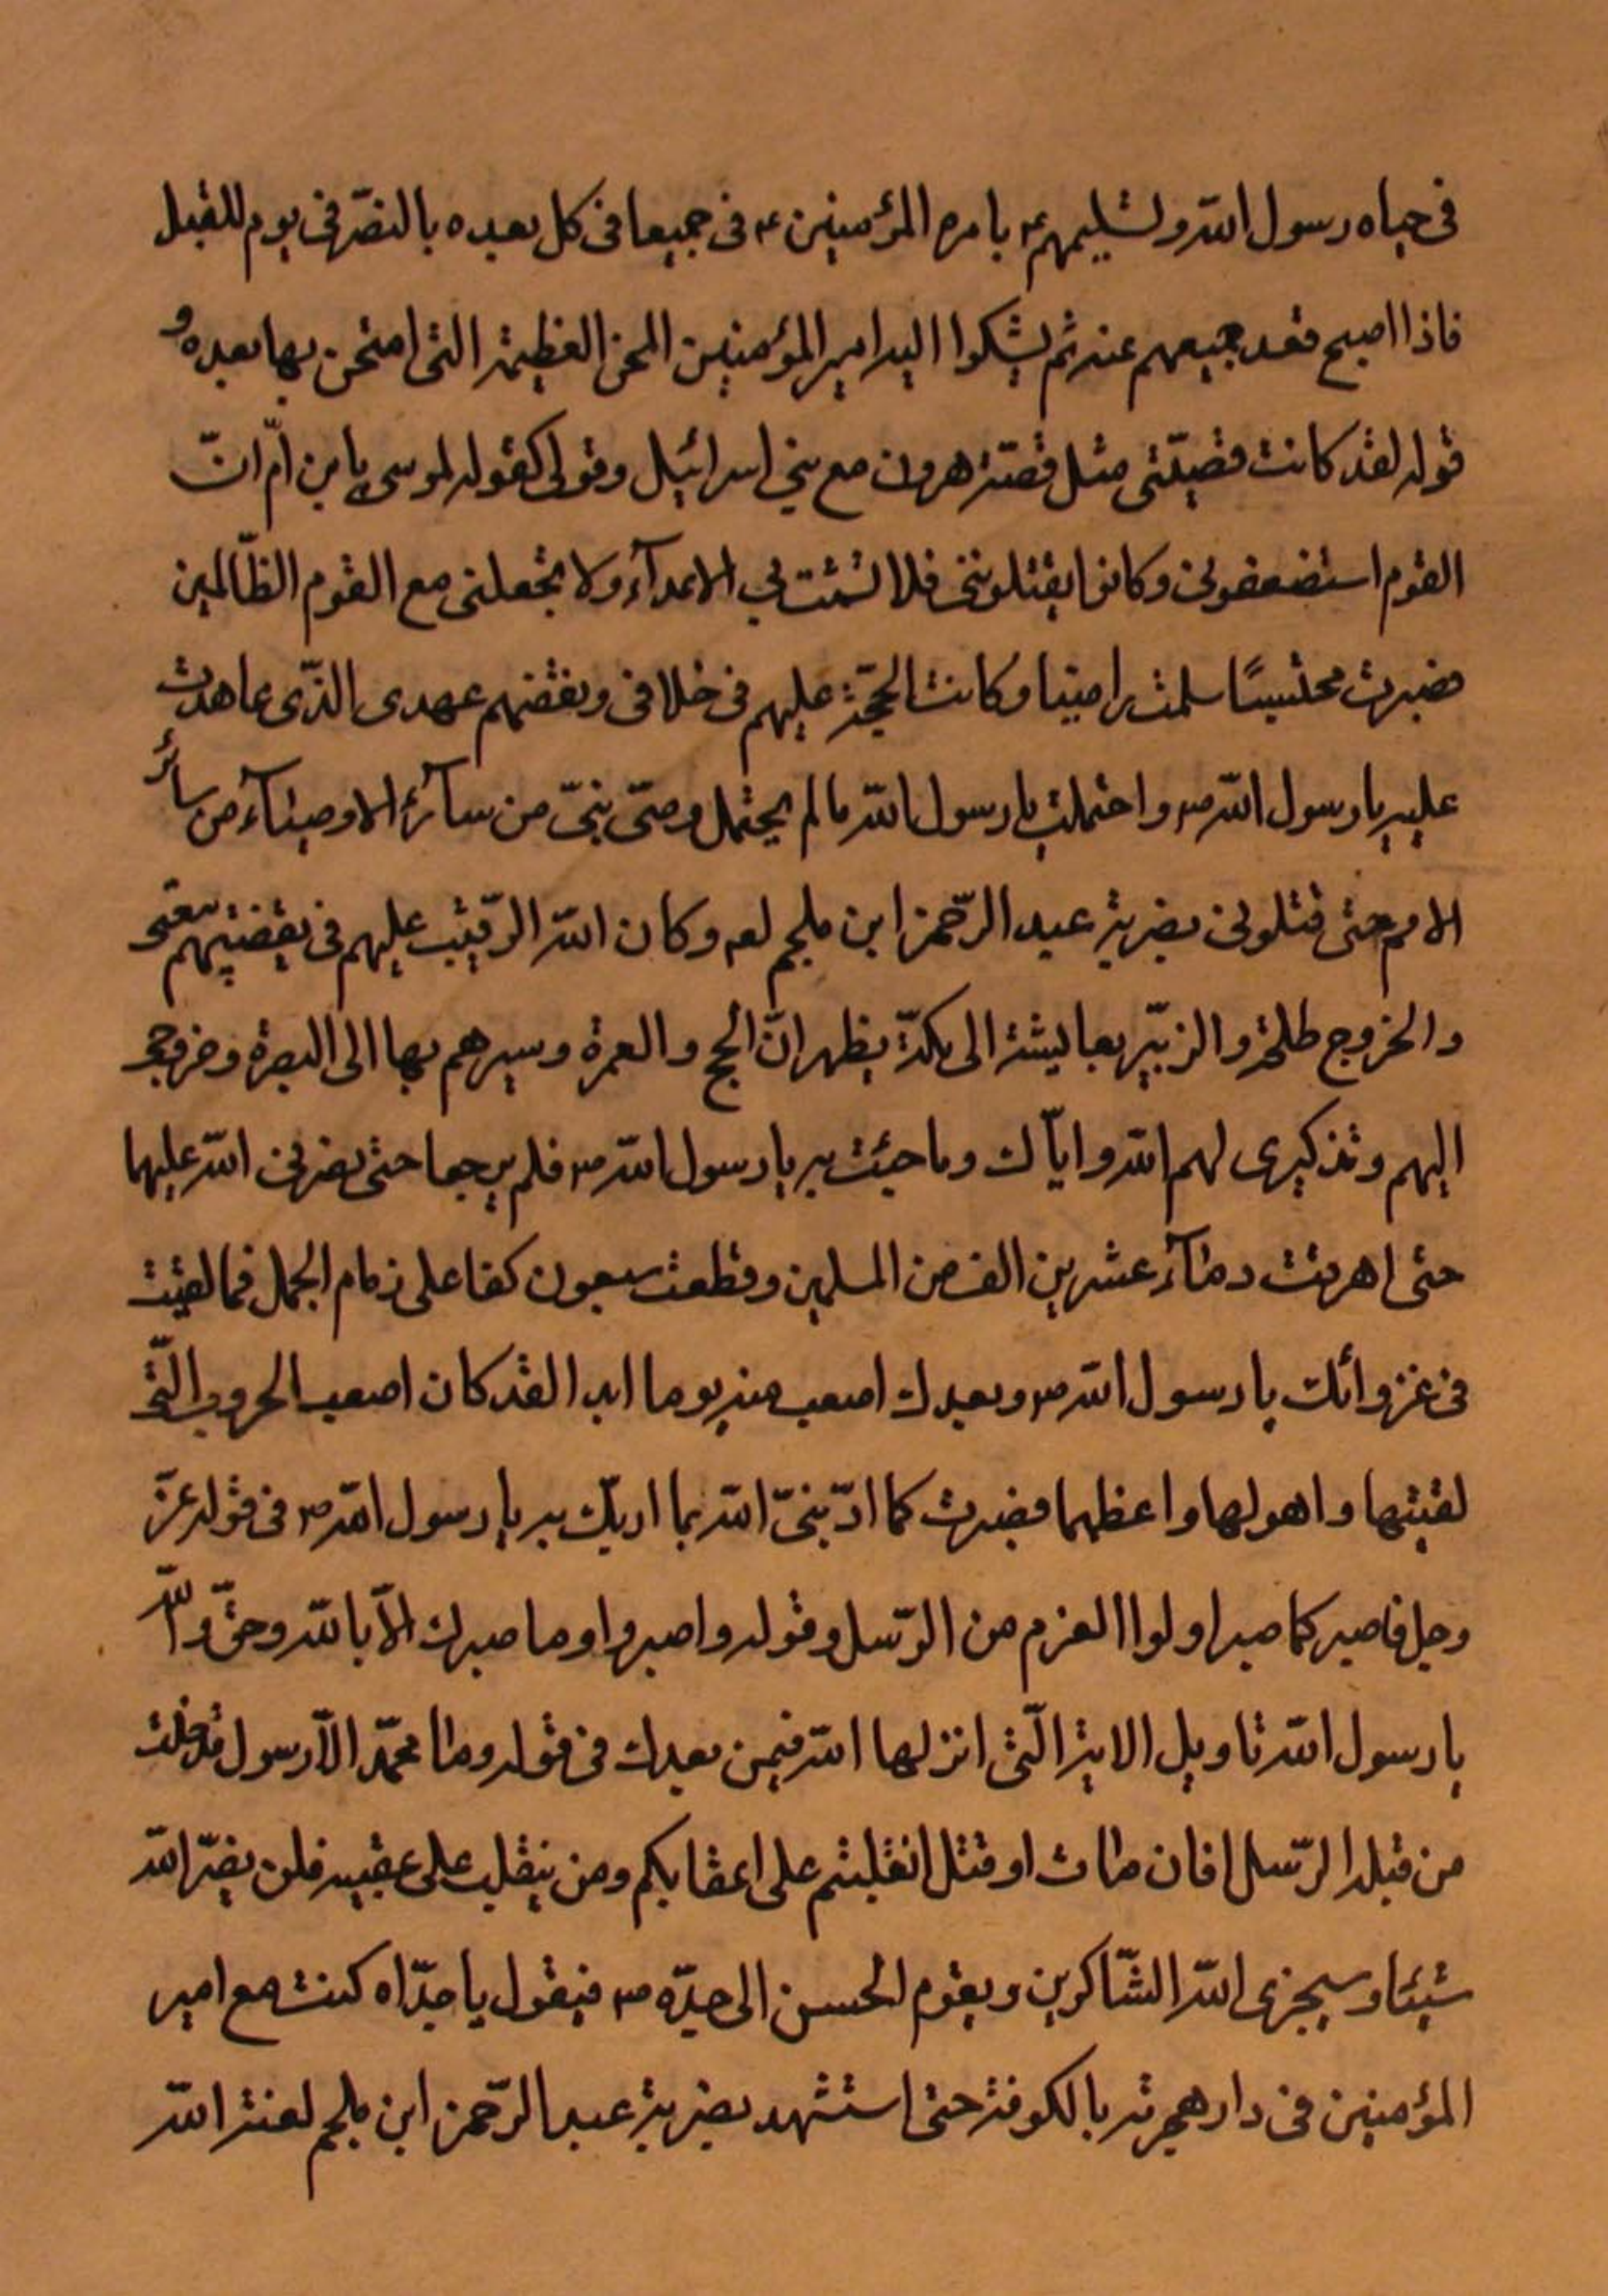 فى حياه رسول الله وتسليمهم ع بامره المؤمنين ع فى جميعا فى كل بعده بالنصر فى يوم للقبل
فاذا اصبح قعد جميعهم عنه ثم يشكوا اليه امير المؤمنين المحن العظيمة التى امتحن بها بعده و
قوله لقد كانت قضيتى مثل قصة هرون مع بني اسرائيل وقولى كقوله لموسى يا بن ام ان
القوم استضعفونى وكانوا يقتلوننى فلا تشمت بي الاعدآء ولا تجعلنى مع القوم الظالمين
فصبرت محتسبا سلمت راضيا وكانت الحجة عليهم فى خلافى ونقضهم عهدى الذى عاهدت
عليه يا رسول الله ص واحتملت يا رسول الله مالم يحتمل وصى نبى من سآئر الاوصيآء من سائر
الامم حتى قتلونى بضربة عبد الرحمن ابن ملجم لعه وكان الله الرقيب عليهم فى نقضهم بيعتى
والخروج طلحة والزبير بعايشة الى مكة يظهران الحج والعمرة وسيرهم بها الى البصرة وخروجى
اليهم وتذكيرى لهم الله واياك وما جئت به يا رسول الله ص فلم يرجعا حتى نصرنى الله عليهما
حتى اهرقت دمآء عشرين الف من المسلمين وقطعت سبعون كفا على زمام الجمل فما لقيت
فى غزواتك يا رسول الله ص وبعدك اصعب منه يوما ابدا لقد كان اصعب الحروب التى
لقيتها واهولها واعظمها فصبرت كما ادبنى الله بما ادبك به يا رسول الله ص فى قوله عز
وجل فاصبر كما صبر اولوا العزم من الرسل وقوله واصبروا وما صبرك الا بالله وحق والله
يا رسول الله تاويل الاية التى انزلها الله فيمن بعدك فى قوله وما محمد الا رسول قد خلت
من قبله الرسل افان مات او قتل انقلبتم على اعقابكم ومن ينقلب على عقبيه فلن يضر الله
شيئا وسيجزى الله الشاكرين ويقوم الحسن الى جده ص فيقول يا جداه كنت مع امير
المؤمنين فى دار هجرته بالكوفة حتى استشهد بضربة عبد الرحمن ابن ملجم لعنة الله